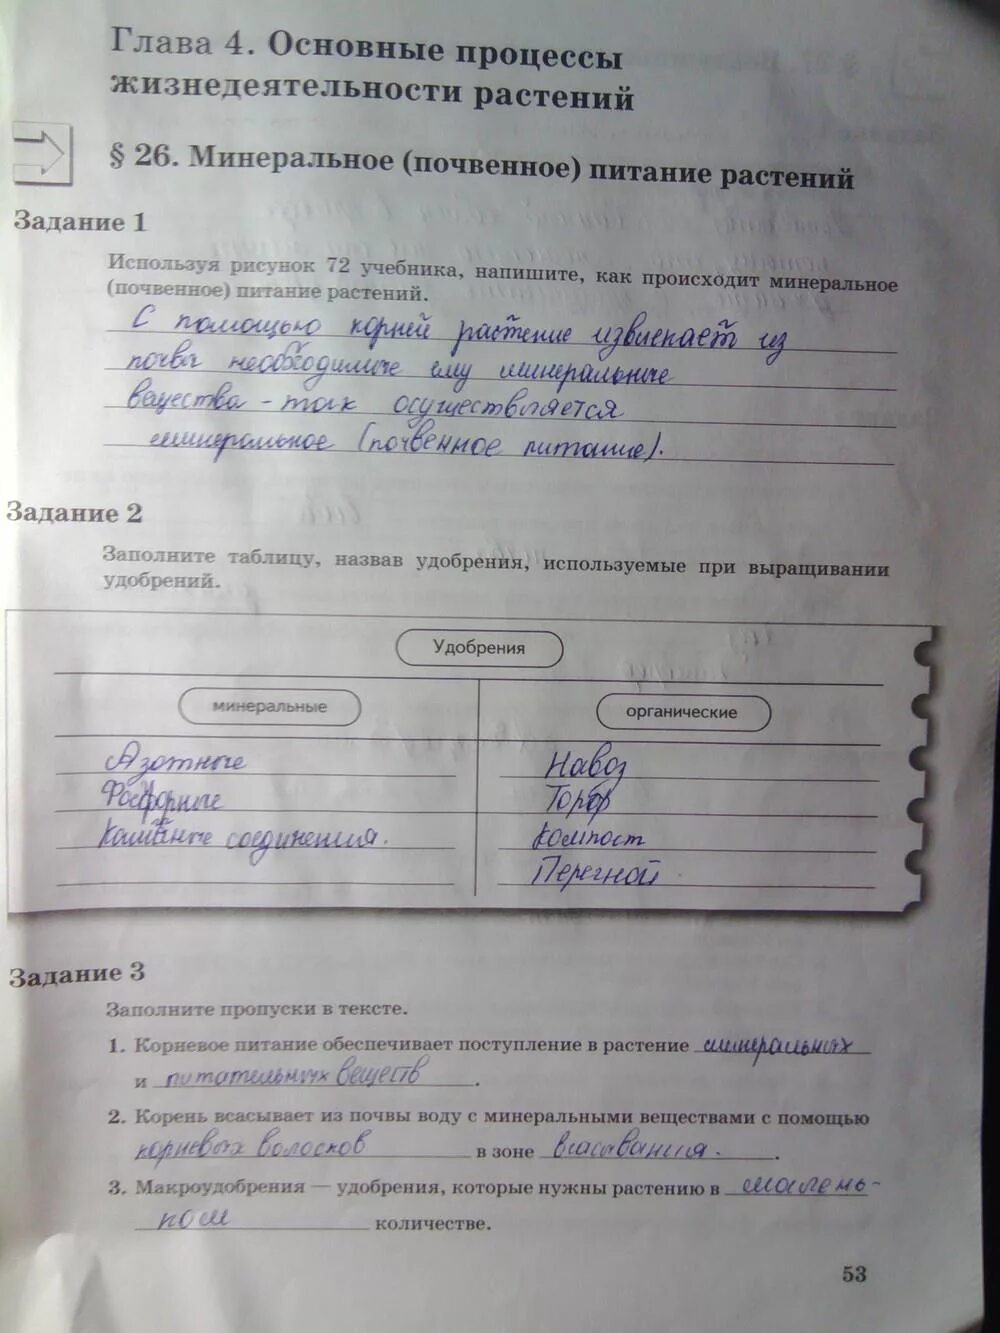 Глава 4. Основные процессы
жизнедеятельности растений
§ 26. Минеральное (почвенное) питание растений
Задание 1
Используя рисунок 72 учебника, напишите, как происходит минеральное
(почвенное) питание растений.
С помощью корней растение извлекает из
почвы необходимые ему минеральные
вещества - так осуществляется
минеральное (почвенное питание).
Задание 2
Заполните таблицу, назвав удобрения, используемые при выращивании
удобрений.
Удобрения
минеральные
органические
Азотные
Навоз
Фосфорные
Торф
Калийные соединения.
Компост
Перегной
Задание 3
Заполните пропуски в тексте.
1. Корневое питание обеспечивает поступление в растение минеральных
и питательных веществ.
2. Корень всасывает из почвы воду с минеральными веществами с помощью
корневых волосков в зоне всасывания.
3. Макроудобрения — удобрения, которые нужны растению в малень-
ком количестве.
53